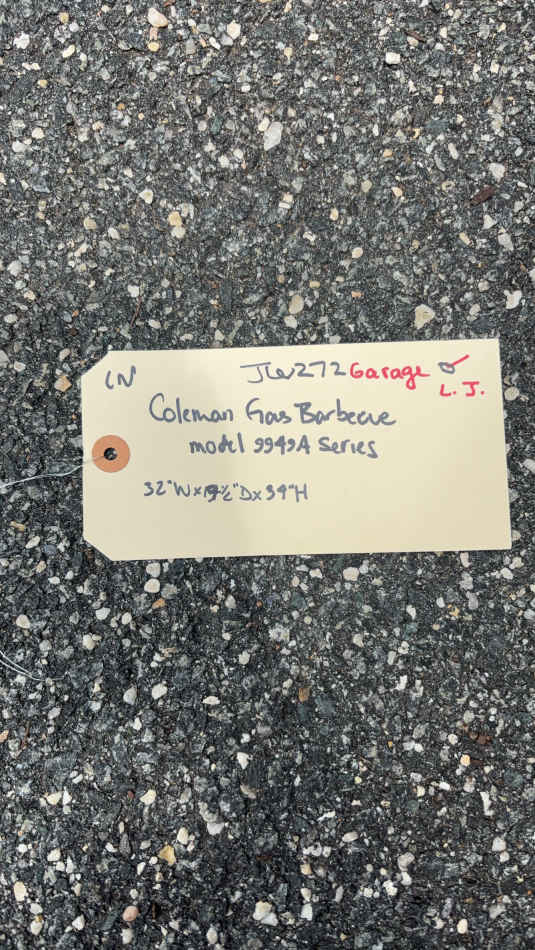 LN JW272 Garage
L.J.
Coleman Gas Barbecue
model 9949A Series
32"W x 19½"D x 39"H